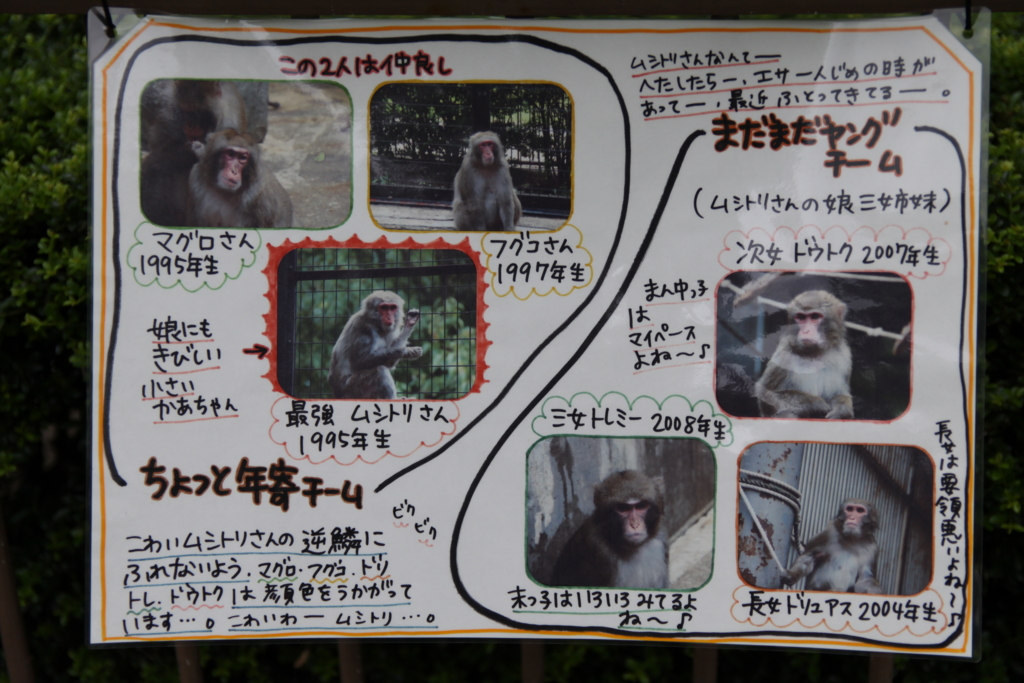 この2人は仲良し
マグロさん
1995年生
フグコさん
1997年生
娘にも
きびしい
小さい
かあちゃん
→
最強 ムシトリさん
1995年生
ちょっと年寄チーム
ビク
ビク
こわいムシトリさんの 逆鱗に
ふれないよう、マグロ・フグコ・ドリ
トレ・ドウトク は 顔色をうかがって
います…。こわいわー ムシトリ…。
ムシトリさんなんてー
へたしたらー、エサ一人じめの時が
あってー、最近 ふとってきてるー。
まだまだヤング
チーム
(ムシトリさんの娘 三姉妹)
次女 ドウトク 2007年生
まん中っ子
は
マイペース
よね〜♪
三女トレミー 2008年生
末っ子はいろいろみてるよ
ね〜♪
長女ドリュアス 2004年生
長女は要領悪いよね〜♪